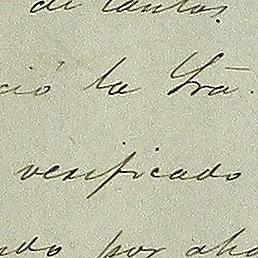 de tantas
ció la Sra.
verificado
ndo por aho